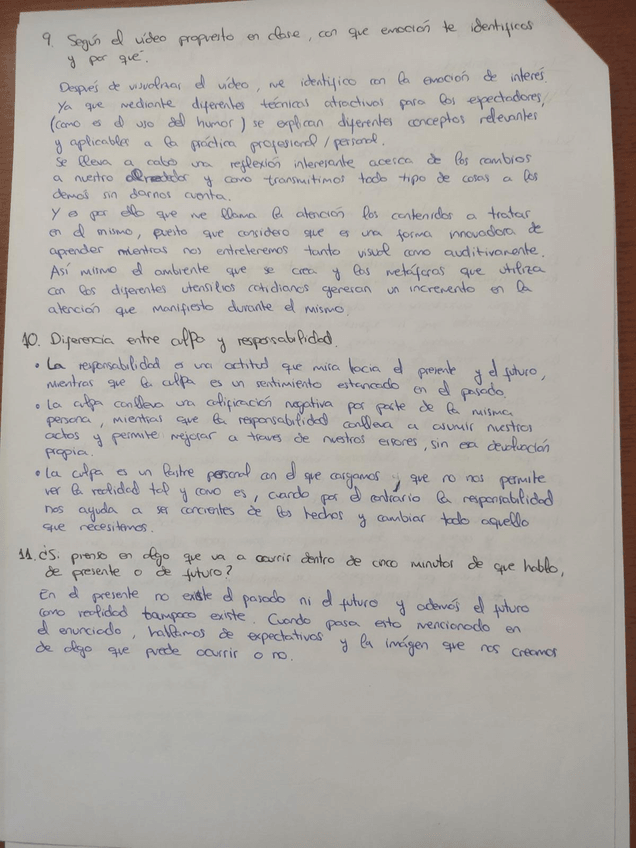 9. Según el vídeo propuesto en clase, con que emoción te identificas
y por qué.
Después de visualizar el vídeo, me identifico con la emoción de interés
ya que mediante diferentes técnicas atractivas para los espectadores,
(como es el uso del humor) se explican diferentes conceptos relevantes
y aplicables a la práctica profesional/personal.
Se lleva a cabo una reflexión interesante acerca de los cambios
a nuestro alrededor y como transmitimos todo tipo de cosas a los
demás sin darnos cuenta.
Y es por ello que me llama la atención los contenidos a tratar
en el mismo, puesto que considero que es una forma innovadora de
aprender mientras nos entretenemos tanto visual como auditivamente.
Así mismo el ambiente que se crea y las metáforas que utiliza
con los diferentes utensilios cotidianos generan un incremento en la
atención que manifiesto durante el mismo.
10. Diferencia entre culpa y responsabilidad.
• La responsabilidad es una actitud que mira hacia el presente y el futuro,
mientras que la culpa es un sentimiento estancado en el pasado.
• La culpa conlleva una calificación negativa por parte de la misma
persona, mientras que la responsabilidad conlleva a asumir nuestros
actos y permite mejorar a traves de nuestros errores, sin esa devaluación
propia.
• La culpa es un lastre personal con el que cargamos y que no nos permite
ver la realidad tal y como es, cuando por el contrario la responsabilidad
nos ayuda a ser concientes de los hechos y cambiar todo aquello
que necesitemos.
11. ¿Si pienso en algo que va a ocurrir dentro de cinco minutos de que hablo,
de presente o de futuro?
En el presente no existe el pasado ni el futuro y además el futuro
como realidad tampoco existe. Cuando pasa esto mencionado en
el enunciado, hablamos de expectativas y la imágen que nos creamos
de algo que puede ocurrir o no.